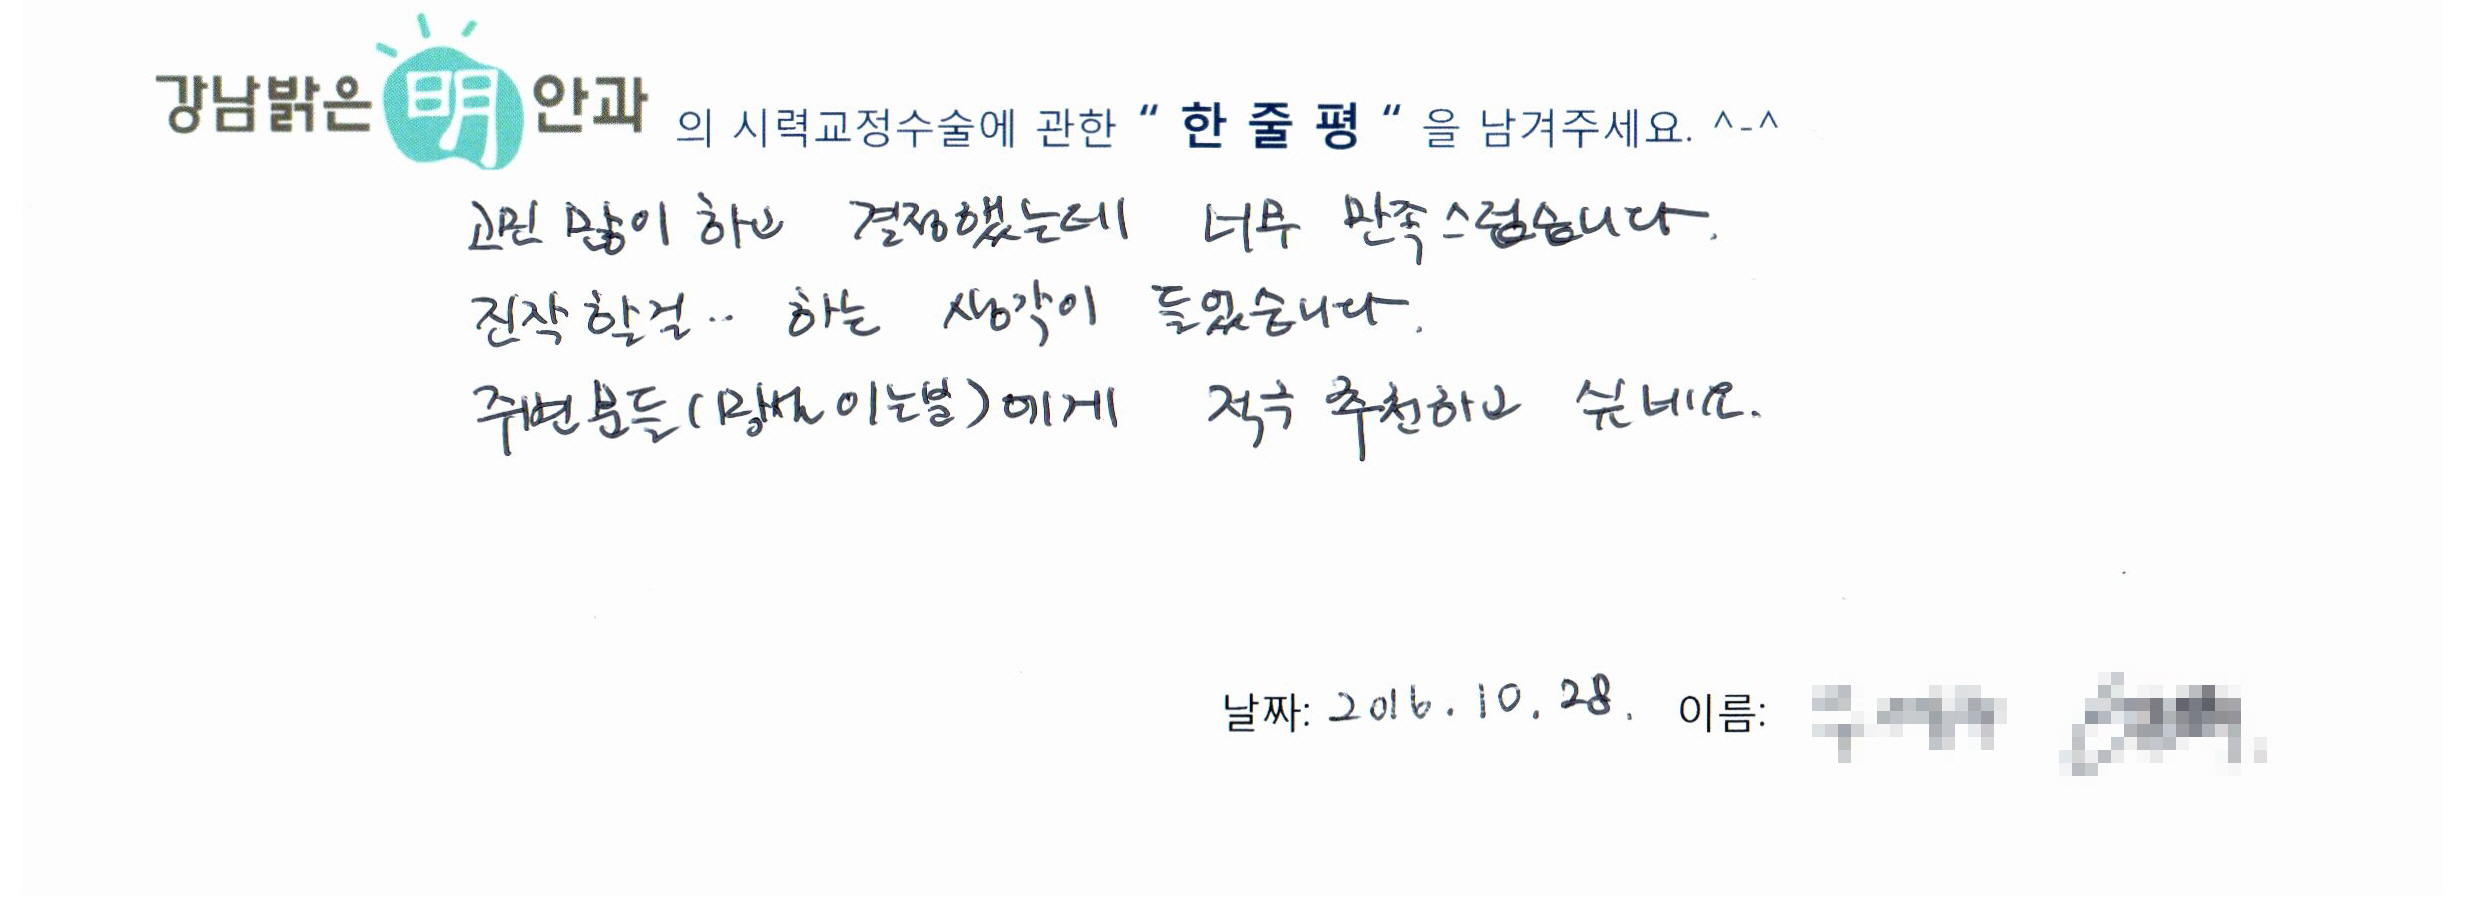 강남밝은 明 안과 의 시력교정수술에 관한 “ 한 줄 평 “ 을 남겨주세요. ^-^
고민 많이 하고 결정했는데 너무 만족스럽습니다.
진작 할걸.. 하는 생각이 들었습니다.
주변분들( 이는분)에게 적극 추천하고 싶네요.
날짜: 2016. 10. 28. 이름: